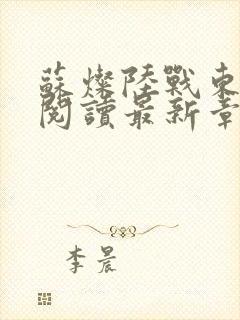 蘇燦陸戰東
閱讀最新章
李晨